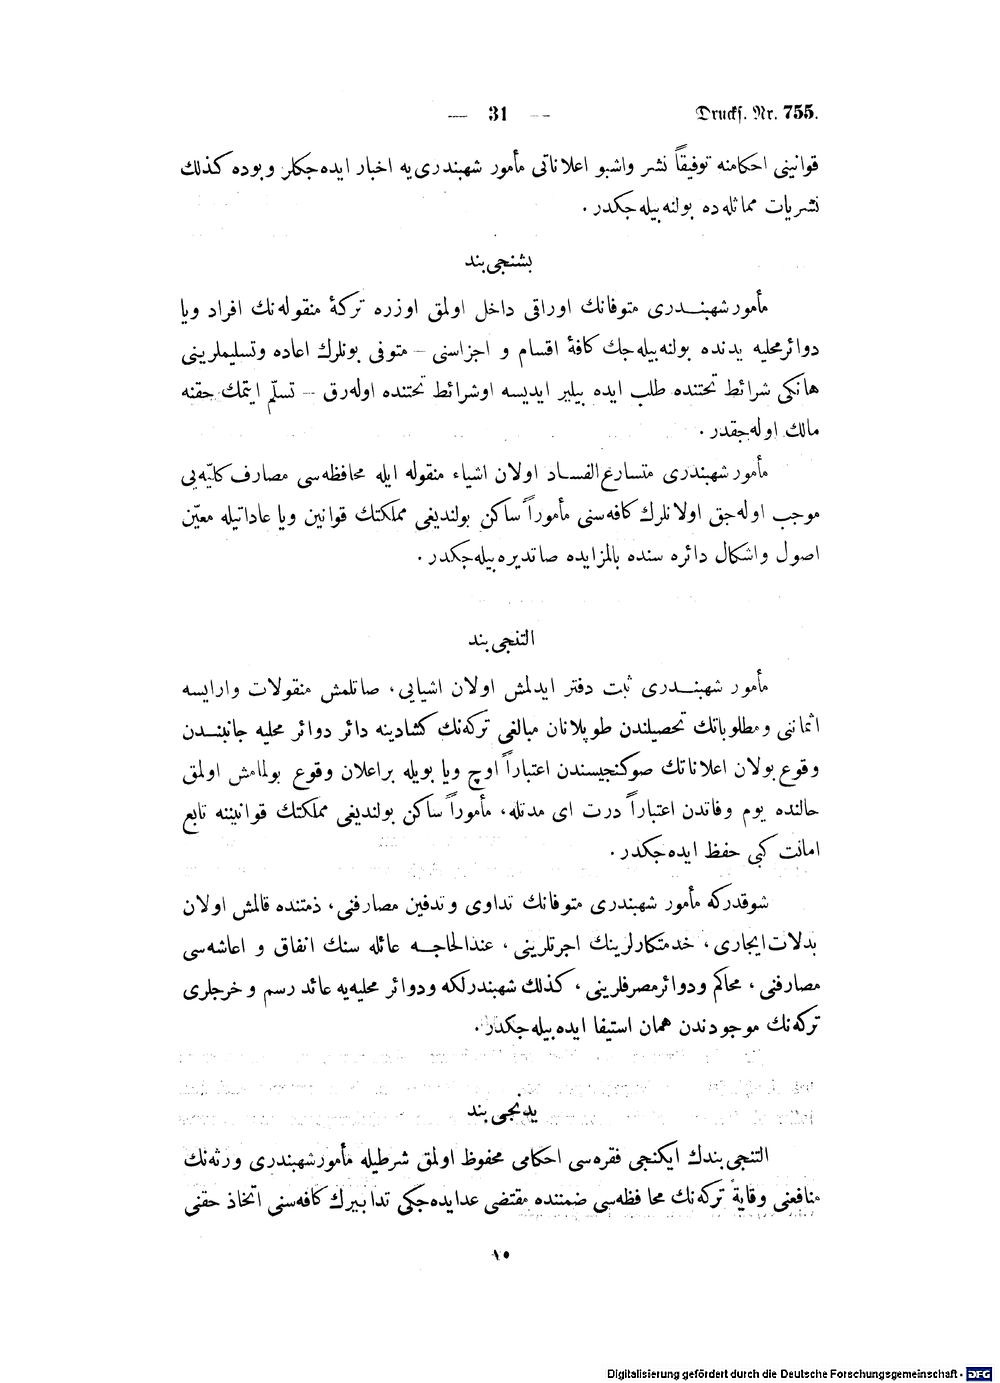 — 31 —
Drucks. Nr. 755.
قوانینی احکامنه توفیقاً نشر واشبو اعلاناتی مأمور شهبندری‌یه اخبار ایده‌جکلر و بوده کذلك
نشریات مماثله‌ده بولنه‌بیله‌جکدر .
بشنجی بند
مأمور شهبنــدری متوفانك اوراقی داخل اولمق اوزره ترکهٔ منقوله‌نك افراد ویا
دوائر محلیه یدنده بولنه‌بیله‌جك کافهٔ اقسام و اجزاسنی – متوفی بونلرك اعاده وتسلیملرینی
هانکی شرائط تحتنده طلب ایده بیلیر ایدیسه اوشرائط تحتنده اوله‌رق – تسلّم ایتمك حقنه
مالك اوله‌جقدر .
مأمور شهبندری متسارع‌الفســاد اولان اشیاء منقوله ایله محافظه‌سی مصارف کلیّه‌یی
موجب اوله‌جق اولانلرك کافه‌سنی مأموراً ساکن بولندیغی مملکتك قوانین ویا عاداتیله معیّن
اصول واشکال دائره سنده بالمزایده صاتدیره‌بیله‌جکدر .
التنجی بند
مأمور شهبنــدری ثبت دفتر ایدلمش اولان اشیایی، صاتلمش منقولات وارایسه
اثماننی ومطلوباتك تحصیلندن طوپلانان مبالغی ترکه‌نك کشادینه دائر دوائر محلیه جانبنــدن
وقوع بولان اعلاناتك صوکنجیسندن اعتباراً اوچ ویا بویله براعلان وقوع بولمامش اولمق
حالنده یوم وفاتدن اعتباراً درت ای مدتله، مأموراً ساکن بولندیغی مملکتك قوانیننه تابع
امانت کبی حفظ ایده‌جکدر .
شوقدرکه مأمور شهبندری متوفانك تداوی وتدفین مصارفنی، ذمتنده قالمش اولان
بدلات ایجاری، خدمتکارلرینك اجرتلرینی، عندالحاجــه عائله سنك انفاق و اعاشه‌سی
مصارفنی، محاکم ودوائر مصرفلرینی، کذلك شهبندرلکه ودوائر محلیه‌یه عائد رسم و خرجلری
ترکه‌نك موجودندن همان استیفا ایده‌بیله‌جکدر .
یدنجی بند
التنجی بندك ایکنجی فقره‌سی احکامی محفوظ اولمق شرطیله مأمور شهبندری ورثه‌نك
منافعنی وقایةً ترکه‌نك محافظه‌سی ضمننده مقتضی عدایده‌جکی تدابیرك کافه‌سنی اتخاذ حقنی
Digitalisierung gefördert durch die Deutsche Forschungsgemeinschaft · DFG